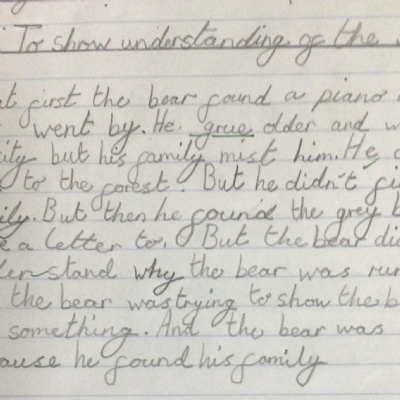 To show understanding of the
at first the bear found a piano
went by. He grue older and w
ity but his family mist him. He
to the forest. But he didn't fi
ily. But then he found the grey b
e a letter to. But the bear did
der stand why the bear was run
the bear was trying to show the b
something. And the bear was
ause he found his family